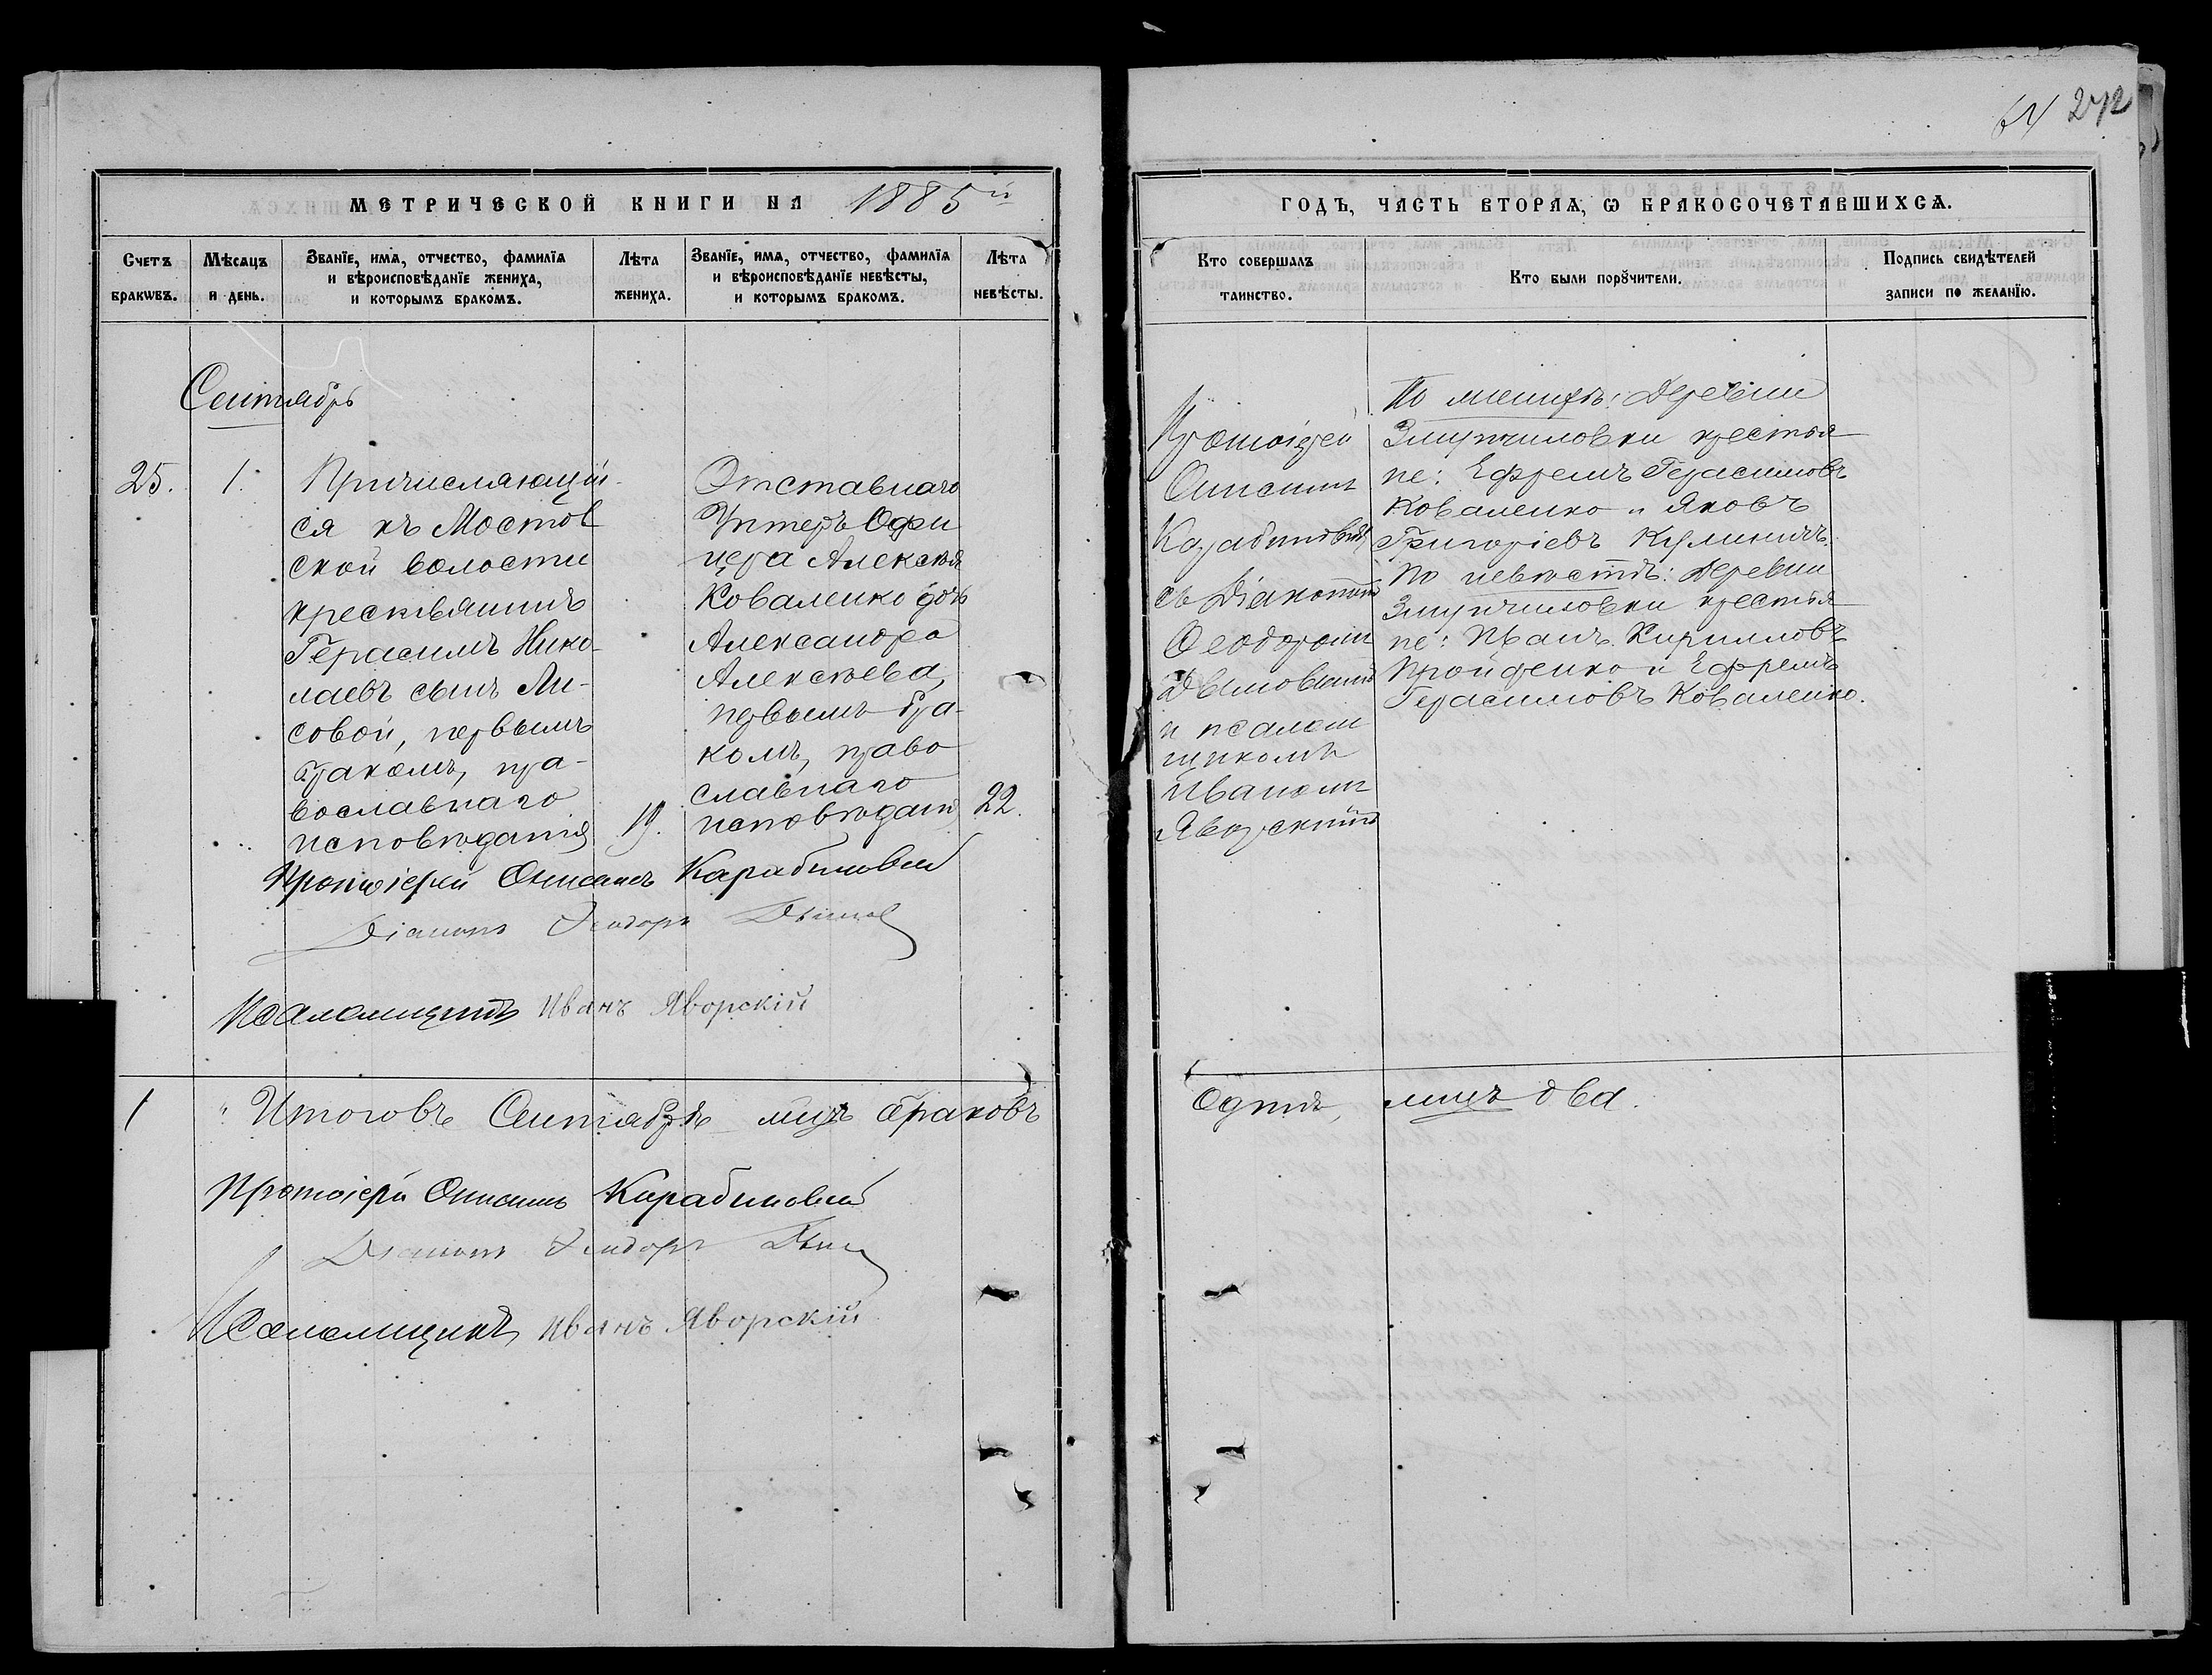 64 272
МЕТРИЧЕСКОЙ КНИГИ НА 1885й
Счетъ браківъ.
Мѣсяцъ и день.
Званїе, имя, отчество, фамилїя
и вѣроисповѣданїе жениха,
и которымъ бракомъ.
Лѣта
жениха.
Званїе, имя, отчество, фамилїя
и вѣроисповѣданїе невѣсты,
и которымъ бракомъ.
Лѣта
невѣсты.
Сентябрь
25.
1.
Причисляющій-
ся къ Мостов
ской волости
крестьянинъ
Герасимъ Нико-
лаевъ сынъ Ли-
совой, первымъ
бракомъ, пра-
вославнаго
исповѣданія
19.
Отставнаго
Унтеръ Офи
цера Алексѣя
Коваленко дочь
Александра
Алексѣева,
первымъ бра-
комъ, право
славнаго
исповѣданія
22.
Протоіерей Онисимъ Карабиновий
Діаконъ Ѳеодоръ
Псаломщикъ Иванъ Яворскій
1
" Итого въ Сентябрѣ мцѣ браковъ
Протоіерей Онисимъ Карабиновий
Діаконъ Ѳеодоръ
Псаломщикъ Иванъ Яворскій
ГОДЪ, ЧАСТЬ ВТОРАЯ, Ѡ БРАКОСОЧЕТАВШИХСЯ.
Кто совершалъ
таинство.
Кто были порꙋчители.
Подпись свидѣтелей
записи по желанїю.
Протоіерей
Онисимъ
Карабиновий
съ Діакономъ
Ѳеодоромъ
и псалом
щикомъ
Иваномъ
Яворскимъ
По женихѣ: Деревни
крестья
не: Ефремъ Герасимовъ
Коваленко и Яковъ
Григоріевъ Кулиничъ.
По невѣстѣ: Деревни
крестья
не: Иванъ Кирилловъ
Пройденко и Ефремъ
Герасимовъ Коваленко.
Одинъ, лицъ два.